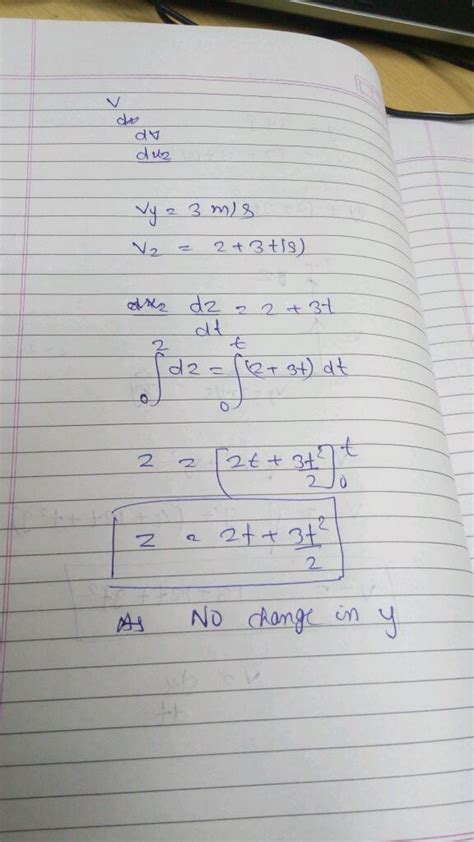 V
dv
dv
dx2
Vy = 3 m/s
Vz = 2 + 3t(s)
dx2 dz/dt = 2 + 3t
∫₀ᶻ dz = ∫₀ᵗ (2 + 3t) dt
z = [2t + 3t²/2]₀ᵗ
z = 2t + 3t²/2
As No change in y